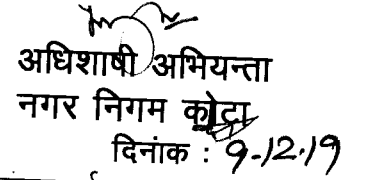 अधिशाषी अभियन्ता
नगर निगम कोटा
दिनांक : 9-12-19